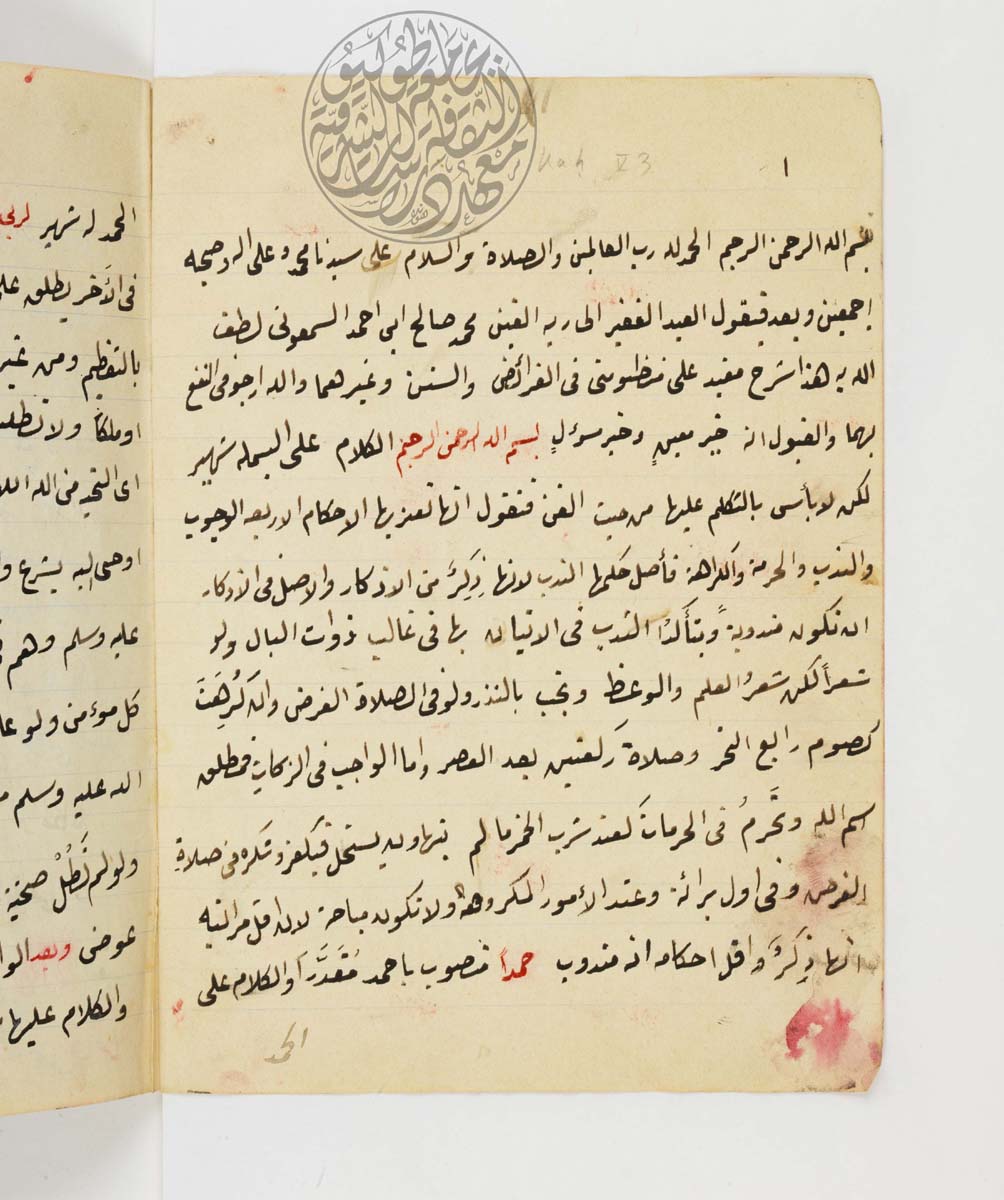 ١
بسم الله الرحمن الرحيم الحمد لله رب العالمين والصلاة والسلام على سيدنا محمد وعلى اله وصحبه
اجمعين وبعد فيقول العبد الفقير الى ربه الغنى محمد صالح ابى احمد السمعونى لطف
الله به هذا شرح مفيد على منظومتى فى الفرائض والسنن وغيرهما والله ارجو فى النفع
بهما والقبول انه خير معينٍ وخير مسؤلٍ بسم الله الرحمن الرحيم الكلام على البسمله شهير
لكن لا بأس بالتكلم عليها من حيث الفن فنقول انها تعتريها الاحكام الاربعه الوجوب
والندب والحرمة والكراهة فأصل حكمها الندب لانها ذِكرٌ من الاذكار والاصل فى الاذكار
ان تكون مندوبةً ويتأكدُ الندب فى الاتيان بها فى غالب ذوات البال ولو
شعراً لكن شعرُ العلم والوعظ وتجب بالنذر ولو فى الصلاة الفرض وان كُرِهَت
كصوم رابع النحر وصلاة ركعتين بعد العصر واما الواجب فى الزكاة فمطلق
اسم الله وتَحرمُ فى الحرمات كعند شرب الخمر ما لم يتهاون يستحل فيكفر وتكره فى صلاةِ
الفرض وفى اول برائة وعند الأمور المكروهة ولا تكون مباحة لان اقل مراتبه
انها ذِكرٌ واقل احكامه انه مندوب حمداً منصوب باحمد مُقدَّراً والكلام على
الحمد
الحمد له شهير
فى الآخر يطلق على
بالتعظيم ومن غير
اوملكاً ولا تطلب
اى التحيه من الله
اوحى اليه بشرع و
عليه وسلم وهم
كل مؤمن ولو
الله عليه وسلم
ولو لم تَطُلْ صحبته
عوض وبعد
والكلام عليها
جامعة طوكيو
معهد الدراسات الثقافية الشرقية